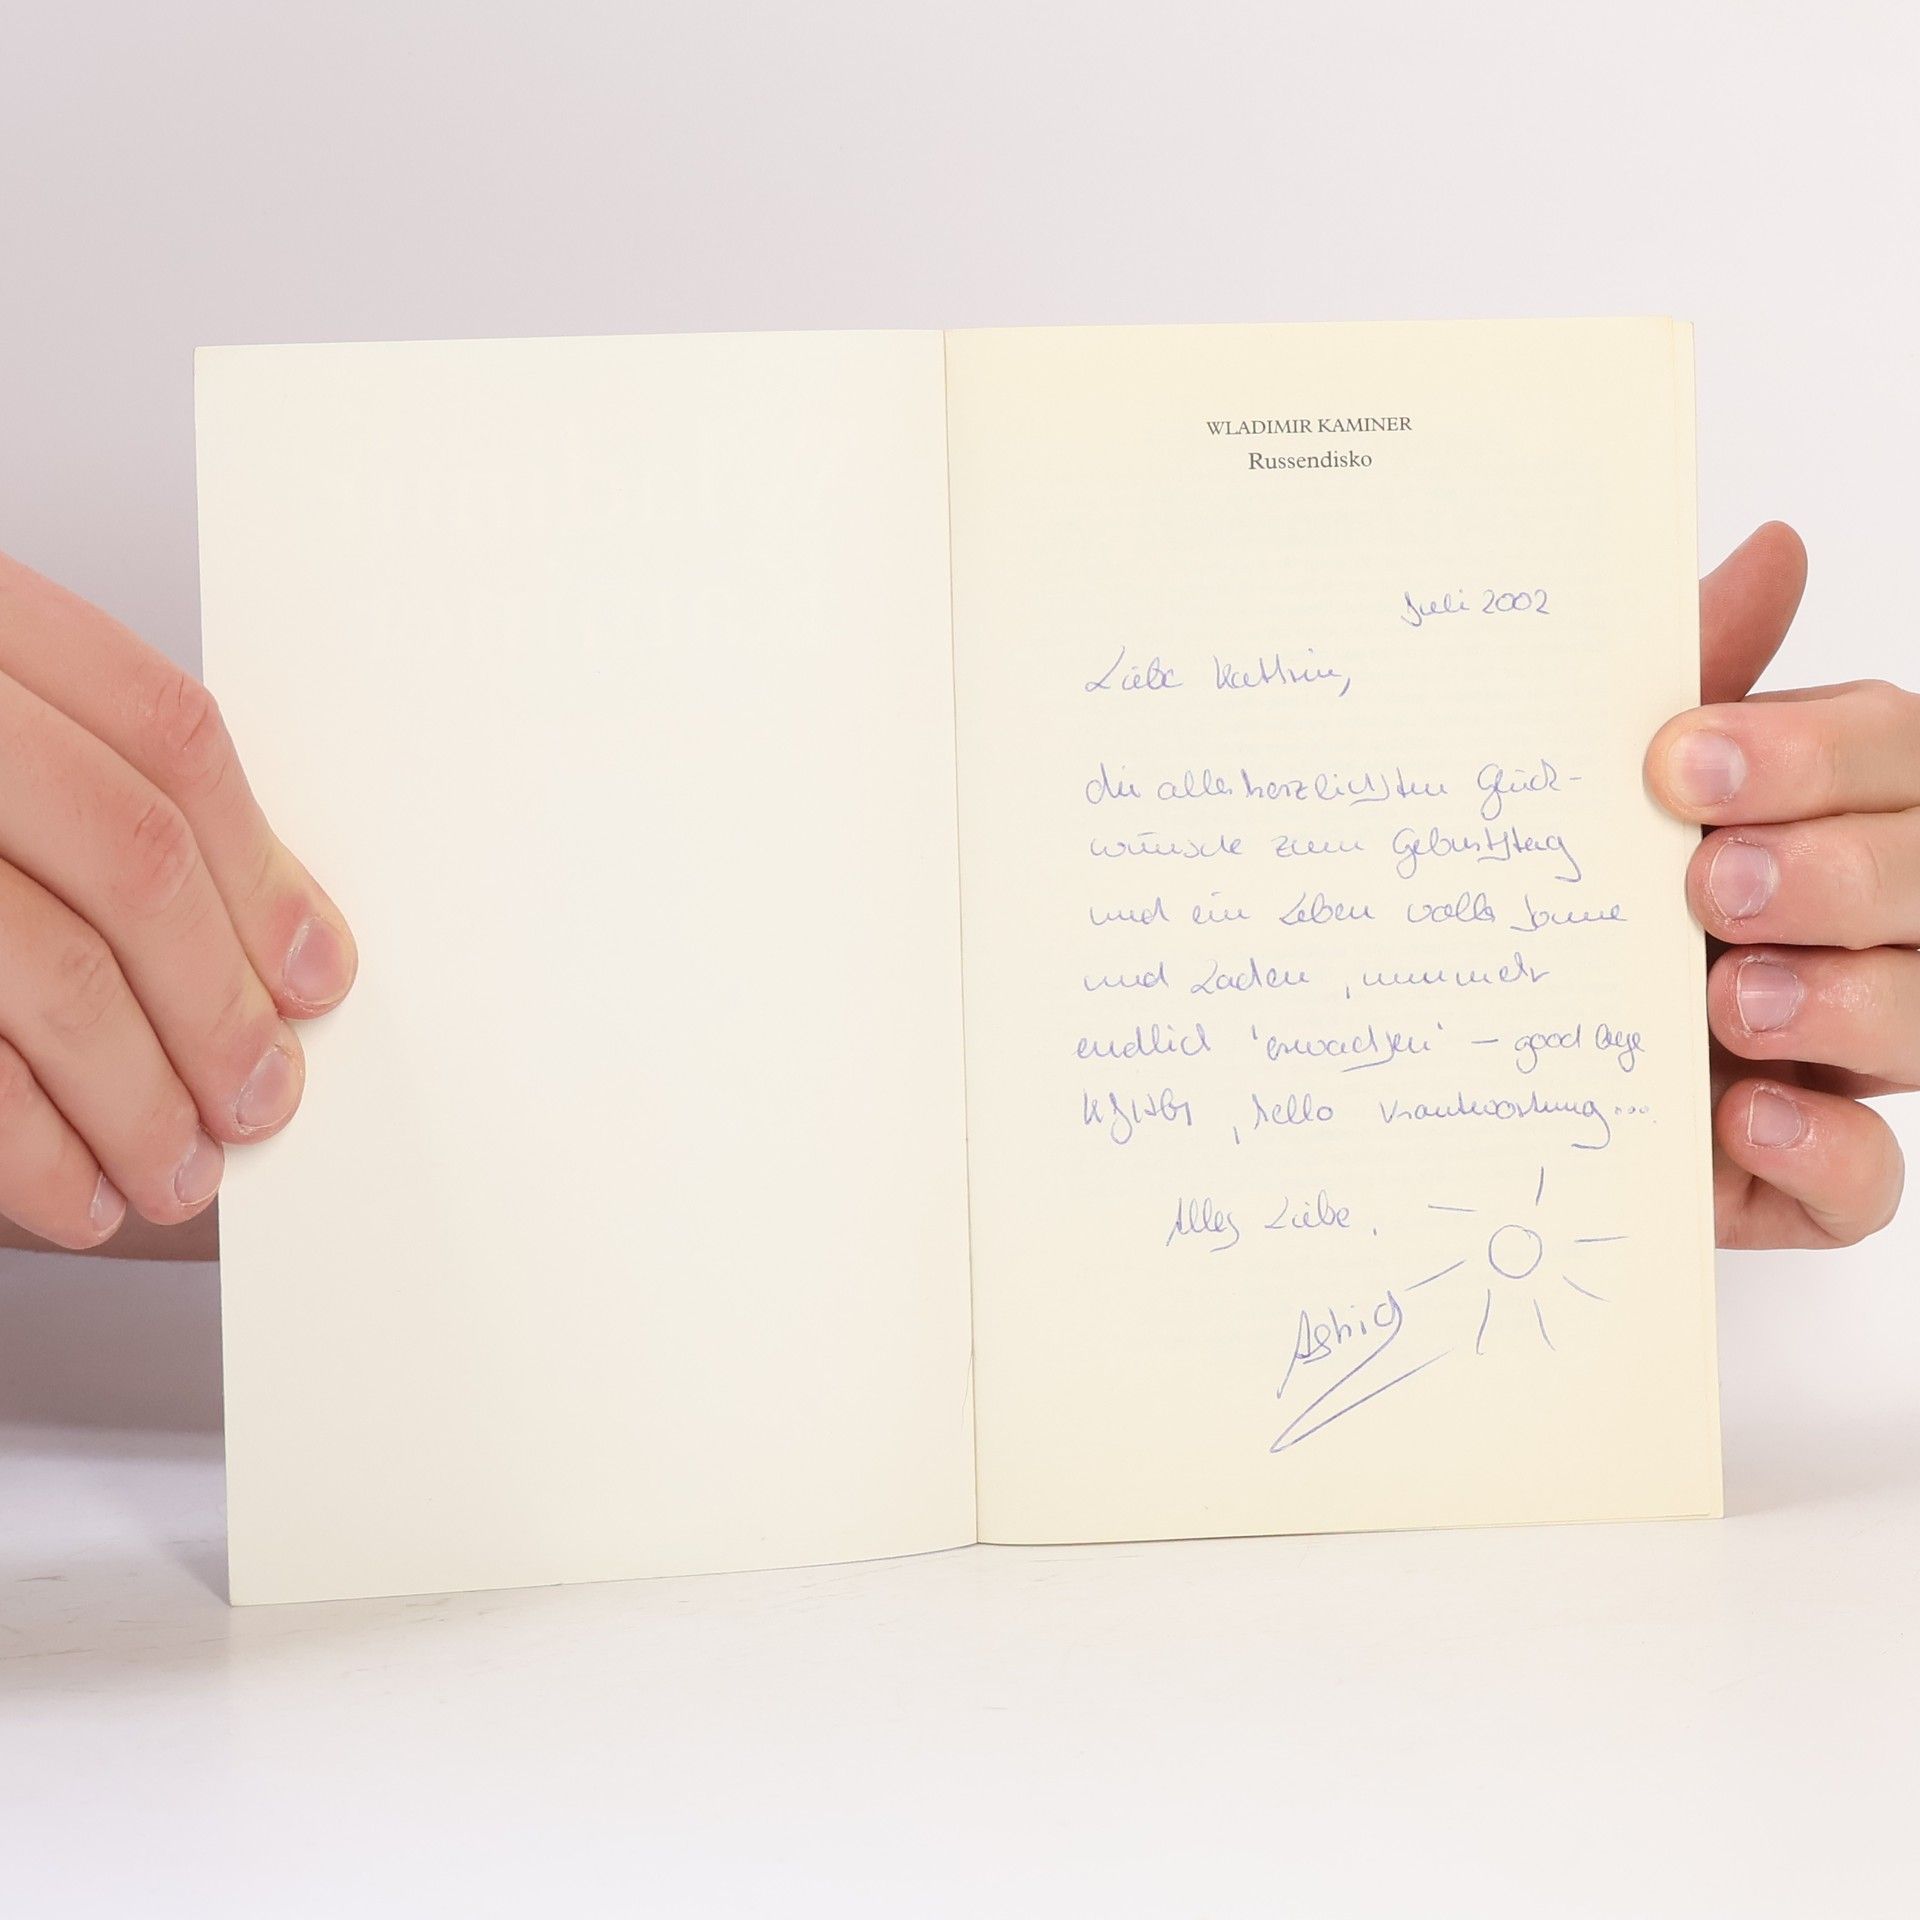 WLADIMIR KAMINER
Russendisko
Juli 2002
Liebe Kathrin,
die allerherzlichsten Glück-
wünsche zum Geburtstag
und ein Leben voller Sonne
und Lachen, nunmehr
endlich 'erwachsen' – good bye
KJHG, hello Verantwortung...
Alles Liebe,
Astrid